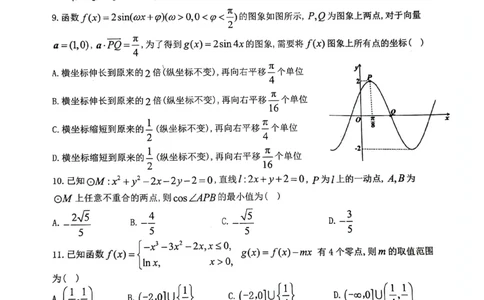 9.函数 f(x)=2sin(ωx+φ)(ω>0,0<φ<π/2)的图象如图所示, P,Q为图象上两点,对于向量
a=(1,0), a·PQ=π/4,为了得到g(x)=2sin4x的图象,需要将 f(x)图象上所有点的坐标( )
A.横坐标伸长到原来的2倍(纵坐标不变),再向右平移 π/4 个单位
B.横坐标伸长到原来的2倍(纵坐标不变),再向右平移 π/16 个单位
C.横坐标缩短到原来的 1/2 (纵坐标不变),再向右平移 π/4 个单位
D.横坐标缩短到原来的 1/2 (纵坐标不变),再向右平移 π/16 个单位
y
2
P
Q
O
π/8
x
-2
10.已知⊙M:x²+y²-2x-2y-2=0,直线l:2x+y+2=0, P为l上的一动点, A,B为
⊙M 上任意不重合的两点,则cos∠APB的最小值为( )
A.-2√5/5 B.-4/5 C.-√5/5 D.-3/5
11.已知函数f(x)={-x³-3x²-2x,x≤0, ln x, x>0, g(x)=f(x)-mx 有4个零点,则m的取值范围
为( )